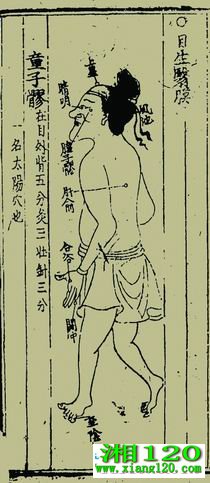 ○目生翳膜
風池
睛明
瞳子髎
肝俞
合谷
關冲
至陰
童子髎在目外眥五分灸三壯針三分
一名太陽穴也
湘120
www.xiang120.com